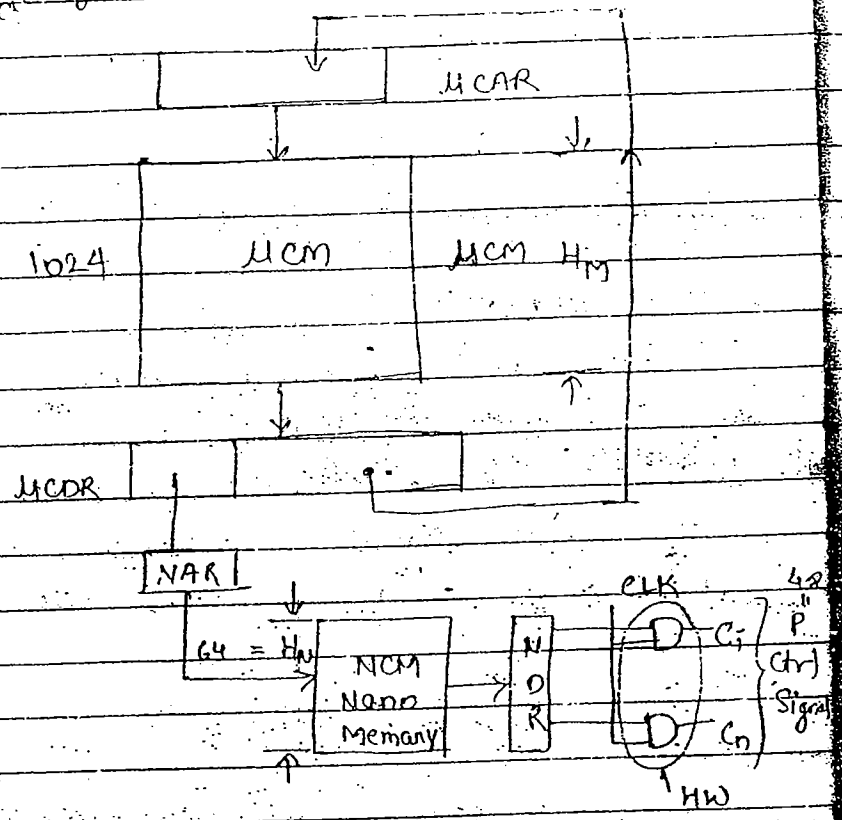 μCAR
1024
μCM
μCM H_M
μCDR
NAR
CLK
48
64 = H_N
NCM
Nano
Memary
N
D
R
C_i
C_n
"
P
Ctrl
Signal
HW